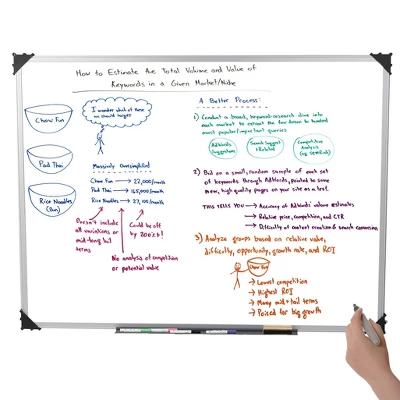 How to Estimate the Total Volume and Value of
Keywords in a Given Market/Niche
Chow Fun
Pad Thai
Rice Noodles
(Bun)
I wonder which of these
we should target
Massively Oversimplified
Chow Fun → 22,000/month
Pad Thai → 165,000/month
Rice Noodles → 27,100/month
Doesn't include
all variations or
mid-long tail
terms
Could be off
by 200%±!
No analysis of competition
or potential value
A Better Process:
1) Conduct a broad, keyword-research dive into
each market to extract the few dozen to hundred
most popular/important queries
AdWords
Suggestions
Search Suggest
+ Related
Competitive
Analysis
(eg SEMRush)
2) Bid on a small, random sample of each set
of keywords through AdWords, pointed to some
new, high quality pages on your site as a test.
THIS TELLS YOU → Accuracy of AdWords' volume estimates
→ Relative price, competition, and CTR
→ Difficulty of content creation & search conversion
3) Analyze groups based on relative value,
difficulty, opportunity, growth rate, and ROI
Chow Fun
→ Lowest competition
→ Highest ROI
→ Many mid + tail terms
→ Poised for big growth